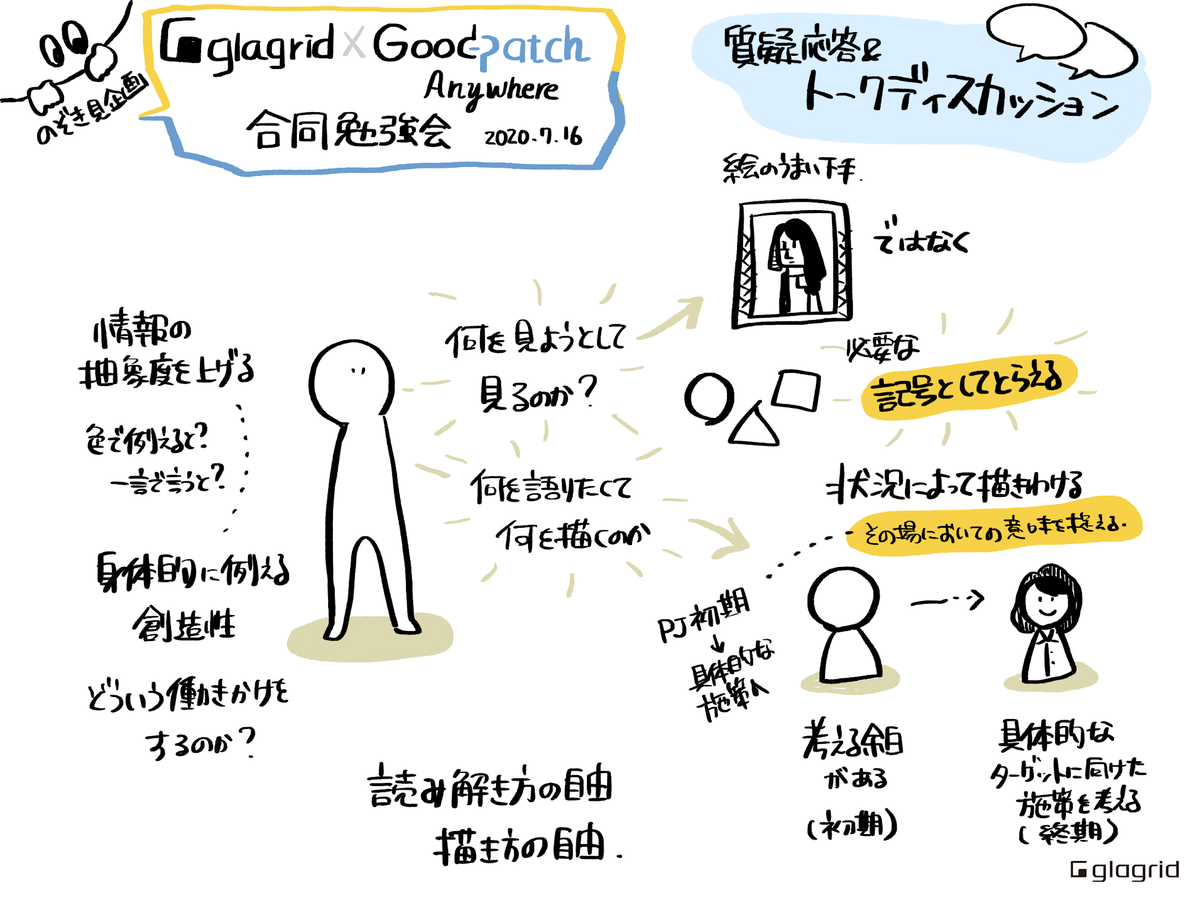 のぞき見企画
glagrid × Goodpatch
Anywhere
合同勉強会 2020.7.16
質疑応答&
トークディスカッション
絵のうまい下手.
ではなく
情報の
抽象度を上げる
色で例えると?
一言で言うと?
身体的に例える
創造性
どういう働きかけを
するのか?
何を見ようとして
見るのか?
何を語りたくて
何を描くのか
必要な
記号としてとらえる
状況によって描きわける
その場においての意味を捉える.
PJ初期
↓
具体的な
施策へ
考える余白
がある
(初期)
具体的な
ターゲットに向けた
施策を考える
(終期)
読み解き方の自由
描き方の自由.
glagrid